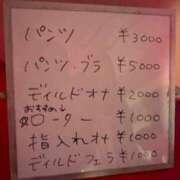 パンツ ¥3000
パンツ・ブラ ¥5000
ディルドオナ ¥2000
おすすめ↓
☆ローター ¥1000
指入れオナ ¥1000
ディルドフェラ ¥1000